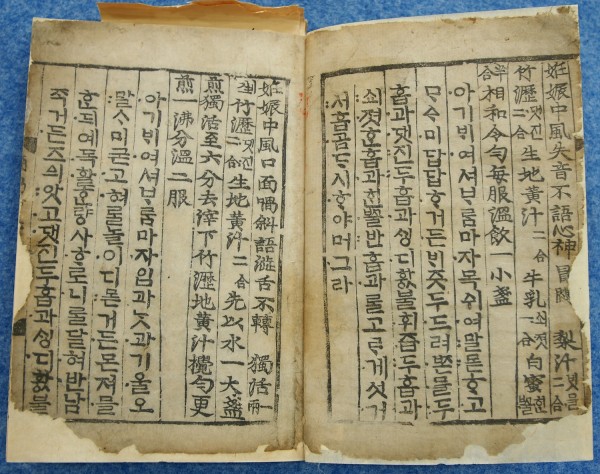 姙娠中風失音不語心神冒悶 梨汁 二合
竹瀝 댓진 二合 生地黃汁 二合 牛乳 쇠졋 一合 白蜜
半合 相和令勻每服溫飮一小盞
아기ᄇᆡ여셔ᄇᆞᄅᆞᆷ마자목쉬여말몯ᄒᆞ고
ᄆᆞᅀᆞ미답답ᄒᆞ거든ᄇᆡ즛두드려ᄧᅩᆫ믈두
홉과댓진두홉과ᄉᆡᆼ디황불휘즙두홉과
쇠졋ᄒᆞᆫ홉과ᄒᆡᆫᄢᅮᆯ반홉과ᄅᆞᆯ고ᄅᆞ게섯거
서홉곰ᄃᆞ시ᄒᆞ야머그라
姙娠中風口面喎斜語澁舌不轉 獨活 一兩
竹瀝 댓진 二合 生地黃汁 二合 先以水一大盞
煎獨活至六分去滓下竹瀝地黃汁攪勻更
煎一沸分溫二服
아기ᄇᆡ여셔ᄇᆞᄅᆞᆷ마자입과ᄂᆞᆺ과기울오
말ᄉᆞ미굳고혀ᄅᆞᆯ놀이디몯거든믈
ᄒᆞᆫ되예독활ᄒᆞᆫ량사ᄒᆞ로니ᄅᆞᆯ달혀반남
죽거든즈ᅀᅴ앗고댓진두홉과ᄉᆡᆼ디황불